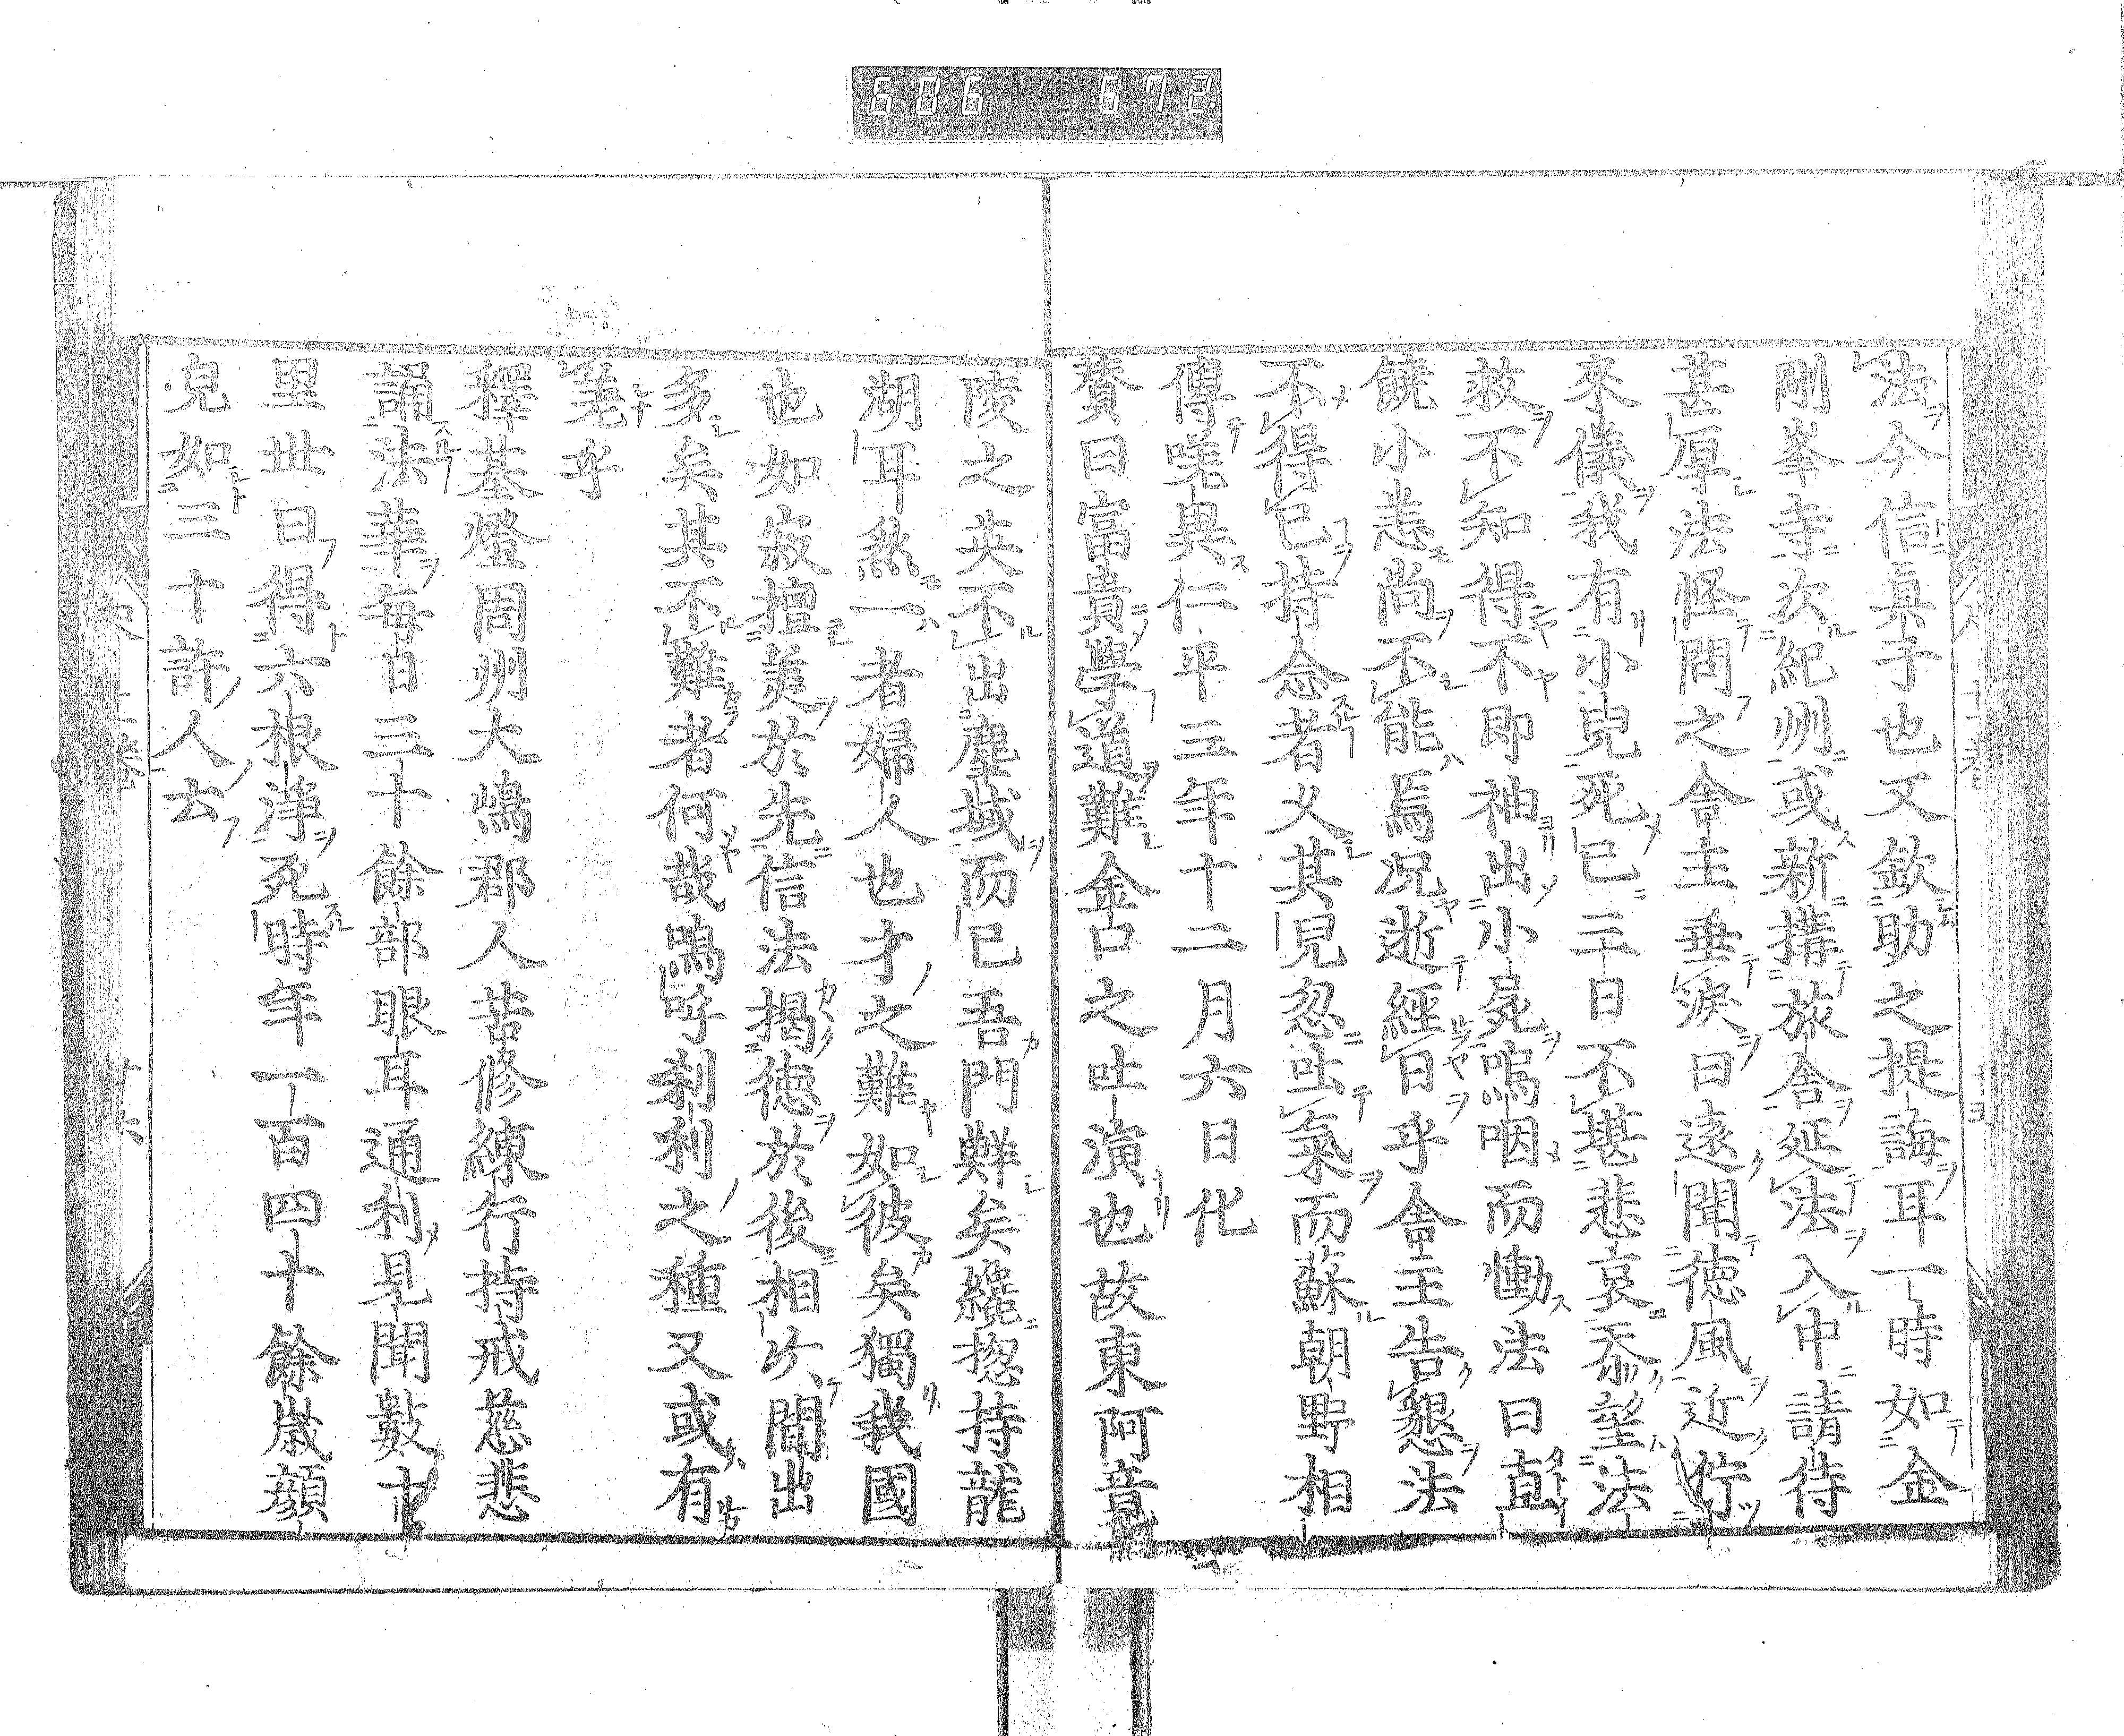 686 672
法今信眞子也又欽助之提誨耳一時如金
剛峯寺次紀州或新搆旅舎延法入中請待
甚厚法怪問之舎主垂淚曰遠聞德風近佇
來儀我有小兒死已三日不堪悲哀忝望法
救不知得不即袖出小屍嗚咽而慟法曰直
饒小恙尚不能焉况逝經日乎舎主告懇法
不得已持念者乂其見忽吐氣而蘇朝野相
傳嘆異仁平三年十二月六日化
贊曰富貴學道難金口之吐演也故東阿竟
陵之英不出塵域而已吾門鮮矣纔揔持龍
湖耳然一者婦人也才之難如彼矣獨我國
也如寂擅美於先信法揭德於後相次間出
多矣其不難者何哉嗚呼刹利之種又或有
差乎
釋基燈周州大嶋郡人苦修練行持戒慈悲
誦法華每日三十餘部眼耳通利見聞數十
里世曰得六根淨死時年一百四十餘歲顏
皃如三十許人去